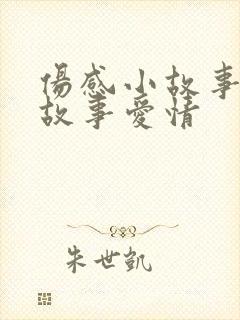 傷感小故事
故事愛情
朱世凱